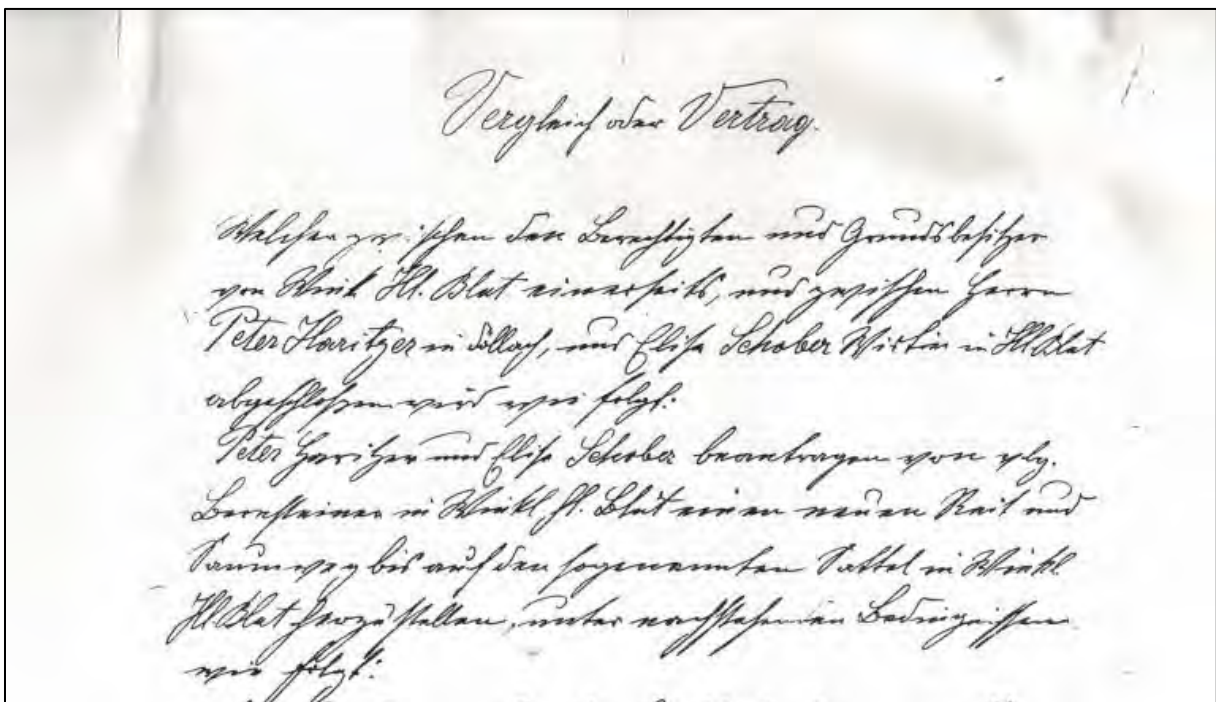 Vergleich oder Vertrag.
Welcher zwischen den Berechtigten und Grundsbesitzer
von Winkl Hl. Blut einerseits, und zwischen Herrn
Peter Haritzer in Döllach, und Elise Schober Wirtin in Hl. Blut
abgeschlossen wird wie folgt:
Peter Haritzer und Elise Schober beantragen von vlg.
in Winkl Hl. Blut einen neuen Reit und
Saumweg bis auf den sogenannten Sattel in Winkl
Hl. Blut herzustellen, unter nachstehenden Bedingnissen
wie folgt: